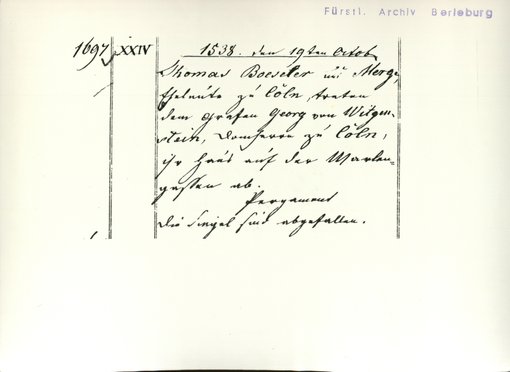 Fürstl. Archiv Berleburg
1697 XXIV
1538. den 19ten Octob
Thomas Boeseler und Merge,
Eheleute zu Cöln, treten
dem Grafen Georg von Witgen-
stein, Domherrn zu Cöln,
ihr Haus auf der Marten-
gassen ab.
Pergament
Die Siegel sind abgefallen.